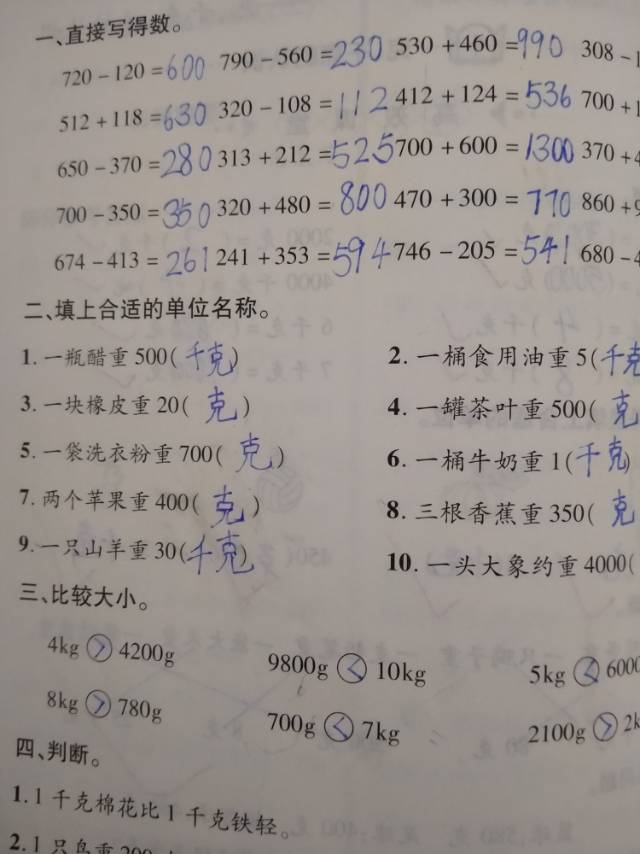 一、直接写得数。
720－120＝600 790－560＝230 530＋460＝990 308－1
512＋118＝630 320－108＝112 412＋124＝536 700＋1
650－370＝280 313＋212＝525 700＋600＝1300 370＋4
700－350＝350 320＋480＝800 470＋300＝770 860＋9
674－413＝261 241＋353＝594 746－205＝541 680－4
二、填上合适的单位名称。
1. 一瓶醋重500(千克) 2. 一桶食用油重5(千克
3. 一块橡皮重20(克) 4. 一罐茶叶重500(克
5. 一袋洗衣粉重700(克) 6. 一桶牛奶重1(千克)
7. 两个苹果重400(克) 8. 三根香蕉重350(克
9. 一只山羊重30(千克) 10. 一头大象约重4000(
三、比较大小。
4kg > 4200g 9800g < 10kg 5kg < 6000
8kg > 780g 700g < 7kg 2100g > 2k
四、判断。
1. 1千克棉花比1千克铁轻。
2. 1只鸟重200